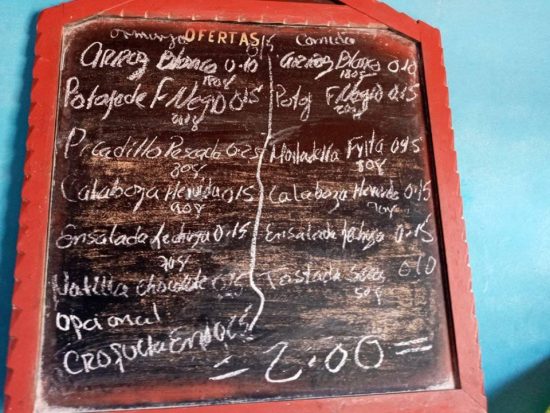 OFERTAS
Almuerzo
Arroz Blanco 0.10
180g
Potaje de F. Negro 0.15
200g
Picadillo Pescado 0.25
80g
Calabaza Hervida 0.15
90g
Ensalada Lechuga 0.15
70g
Natilla chocolate 0.25
opcional
CROqueta
Comida
Arroz Blanco 0.10
180g
Potaj F Negro 0.15
200g
Mortadella Frita 0.45
80g
Calabaza Hervida 0.15
90g
Ensalada lechuga 0.15
Tostada 0.10
50g
= 2.00 =